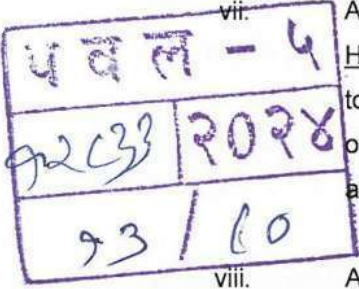 vii. A
प व ल - ५
H
to
१२८३३ २०२४
o
a
१३ / ८०
viii. A